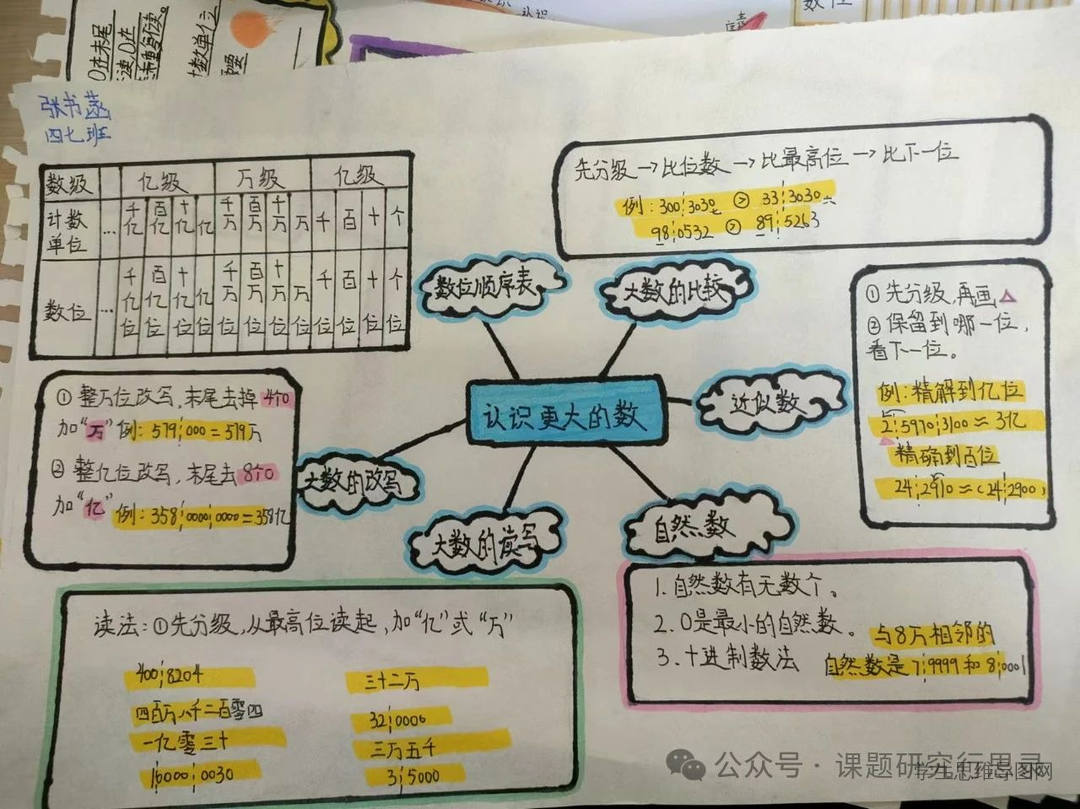 0在末尾
张书菡
四七班
数级 亿级 万级 亿级
计数单位 … 千亿 百亿 十亿 亿 千万 百万 十万 万 千 百 十 个
数位 … 千亿位 百亿位 十亿位 亿位 千万位 百万位 十万位 万位 千位 百位 十位 个位
先分级→比位数→比最高位→比下一位
例:300¦3030 > 33¦3030
98¦0532 > 89¦5263
数位顺序表
大数的比较
①先分级,再画△
②保留到哪一位,
看下一位。
例:精解到亿位
2¦5970¦3100≈3亿
精确到百位
24¦2910≈(24¦2900)
近似数
认识更大的数
①整万位改写,末尾去掉4个0
加“万”例:519¦000=519万
②整亿位改写,末尾去8个0
加“亿”例:358¦0000¦0000=358亿
大数的改写
大数的读写
自然数
1.自然数有无数个。
2.0是最小的自然数。
3.十进制数法
与8万相邻的
自然数是7¦9999和8¦0001
读法:①先分级,从最高位读起,加“亿”或“万”
400¦8204
四百万八千二百零四
一亿零三十
16000¦0030
三十二万
32¦0000
三万五千
3¦5000
公众号·课题研究行思录
学生思维导图网